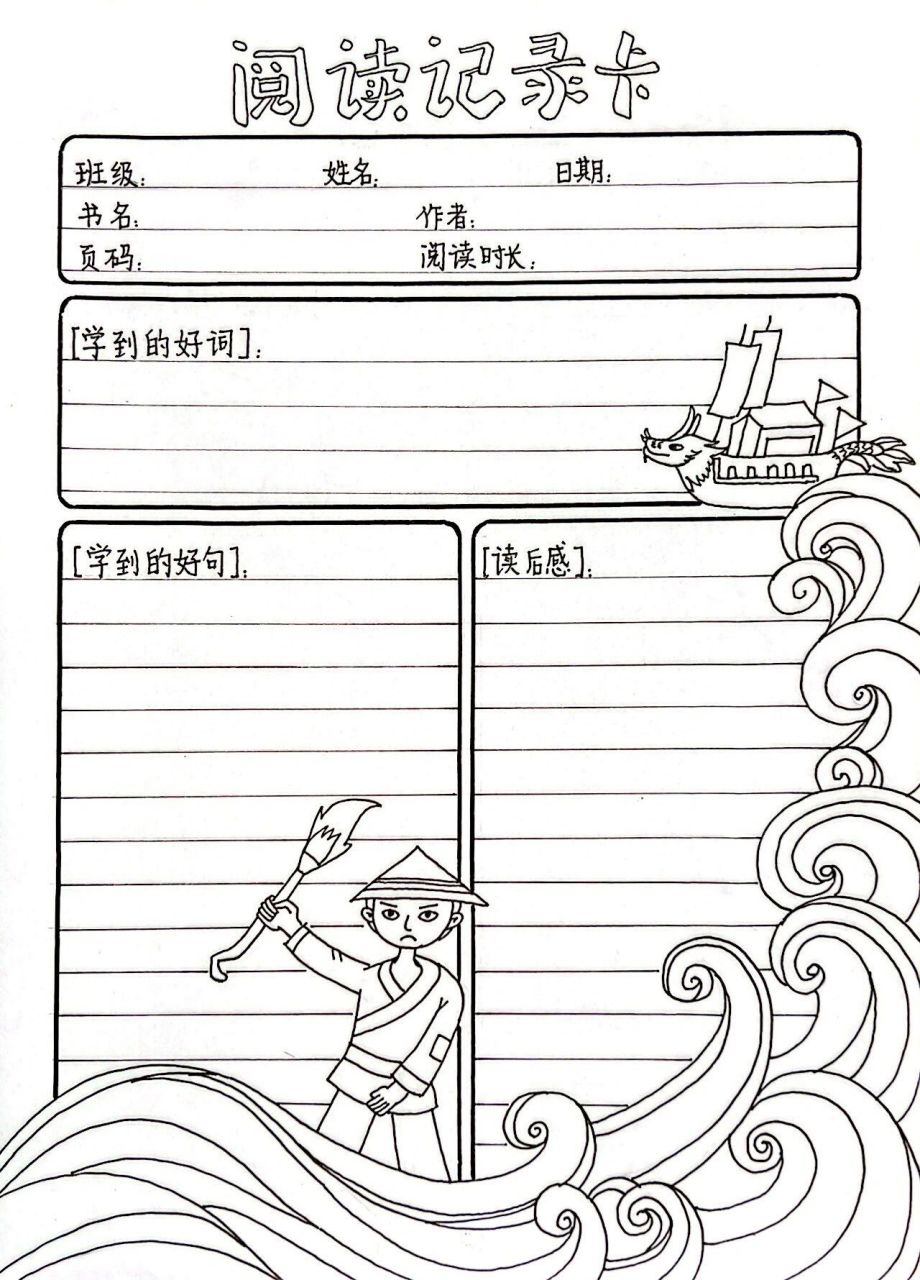 阅读记录卡
班级: 姓名: 日期:
书名: 作者:
页码: 阅读时长:
[学到的好词]:
[学到的好句]:
[读后感]: